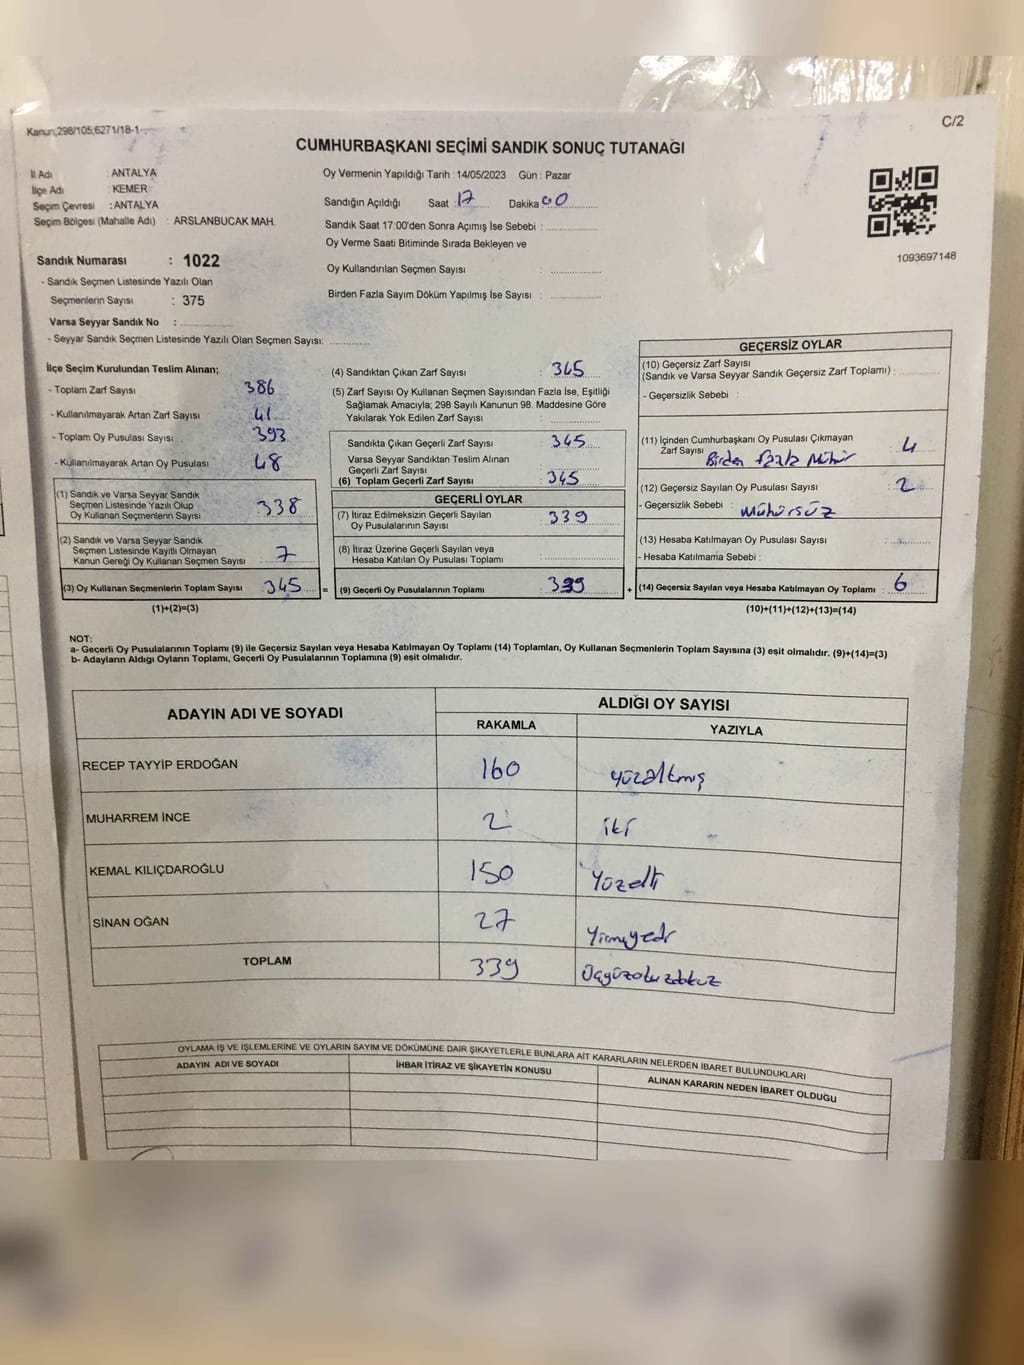 Kanun;298/105,6271/18-1
C/2
CUMHURBAŞKANI SEÇİMİ SANDIK SONUÇ TUTANAĞI
İl Adı : ANTALYA
İlçe Adı : KEMER
Seçim Çevresi : ANTALYA
Seçim Bölgesi (Mahalle Adı) : ARSLANBUCAK MAH.
Oy Vermenin Yapıldığı Tarih : 14/05/2023 Gün : Pazar
Sandığın Açıldığı Saat : 17 Dakika : 00
Sandık Saat 17:00'den Sonra Açımış İse Sebebi :
Oy Verme Saati Bitiminde Sırada Bekleyen ve
Oy Kullandırılan Seçmen Sayısı :
Birden Fazla Sayım Döküm Yapılmış İse Sayısı :
1093697148
Sandık Numarası : 1022
- Sandık Seçmen Listesinde Yazılı Olan
Seçmenlerin Sayısı : 375
Varsa Seyyar Sandık No :
- Seyyar Sandık Seçmen Listesinde Yazılı Olan Seçmen Sayısı:
İlçe Seçim Kurulundan Teslim Alınan;
- Toplam Zarf Sayısı : 386
- Kullanılmayarak Artan Zarf Sayısı : 41
- Toplam Oy Pusulası Sayısı : 393
- Kullanılmayarak Artan Oy Pusulası : 48
(1) Sandık ve Varsa Seyyar Sandık
Seçmen Listesinde Yazılı Olup
Oy Kullanan Seçmenlerin Sayısı : 338
(2) Sandık ve Varsa Seyyar Sandık
Seçmen Listesinde Kayıtlı Olmayan
Kanun Gereği Oy Kullanan Seçmen Sayısı : 7
(3) Oy Kullanan Seçmenlerin Toplam Sayısı : 345 =
(1)+(2)=(3)
(4) Sandıktan Çıkan Zarf Sayısı : 345
(5) Zarf Sayısı Oy Kullanan Seçmen Sayısından Fazla İse, Eşitliği
Sağlamak Amacıyla; 298 Sayılı Kanunun 98. Maddesine Göre
Yakılarak Yok Edilen Zarf Sayısı :
Sandıkta Çıkan Geçerli Zarf Sayısı : 345
Varsa Seyyar Sandıktan Teslim Alınan
Geçerli Zarf Sayısı :
(6) Toplam Geçerli Zarf Sayısı : 345
GEÇERLİ OYLAR
(7) İtiraz Edilmeksizin Geçerli Sayılan
Oy Pusulalarının Sayısı : 339
(8) İtiraz Üzerine Geçerli Sayılan veya
Hesaba Katılan Oy Pusulası Toplamı :
(9) Geçerli Oy Pusulalarının Toplamı : 339 +
GEÇERSİZ OYLAR
(10) Geçersiz Zarf Sayısı
(Sandık ve Varsa Seyyar Sandık Geçersiz Zarf Toplamı) :
- Geçersizlik Sebebi :
(11) İçinden Cumhurbaşkanı Oy Pusulası Çıkmayan
Zarf Sayısı : 4
Birden fazla Mühür
(12) Geçersiz Sayılan Oy Pusulası Sayısı : 2
- Geçersizlik Sebebi : Mühürsüz
(13) Hesaba Katılmayan Oy Pusulası Sayısı :
- Hesaba Katılmama Sebebi :
(14) Geçersiz Sayılan veya Hesaba Katılmayan Oy Toplamı : 6
(10)+(11)+(12)+(13)=(14)
NOT:
a- Geçerli Oy Pusulalarının Toplamı (9) ile Geçersiz Sayılan veya Hesaba Katılmayan Oy Toplamı (14) Toplamları, Oy Kullanan Seçmenlerin Toplam Sayısına (3) eşit olmalıdır. (9)+(14)=(3)
b- Adayların Aldığı Oyların Toplamı, Geçerli Oy Pusulalarının Toplamına (9) eşit olmalıdır.
ADAYIN ADI VE SOYADI
ALDIĞI OY SAYISI
RAKAMLA YAZIYLA
RECEP TAYYİP ERDOĞAN 160 yüzaltmış
MUHARREM İNCE 2 iki
KEMAL KILIÇDAROĞLU 150 Yüzelli
SİNAN OĞAN 27 Yirmiyedi
TOPLAM 339 Üçyüzotuzdokuz
OYLAMA İŞ VE İŞLEMLERİNE VE OYLARIN SAYIM VE DÖKÜMÜNE DAİR ŞİKAYETLERLE BUNLARA AİT KARARLARIN NELERDEN İBARET BULUNDUKLARI
ADAYIN ADI VE SOYADI İHBAR İTİRAZ VE ŞİKAYETİN KONUSU ALINAN KARARIN NEDEN İBARET OLDUĞU